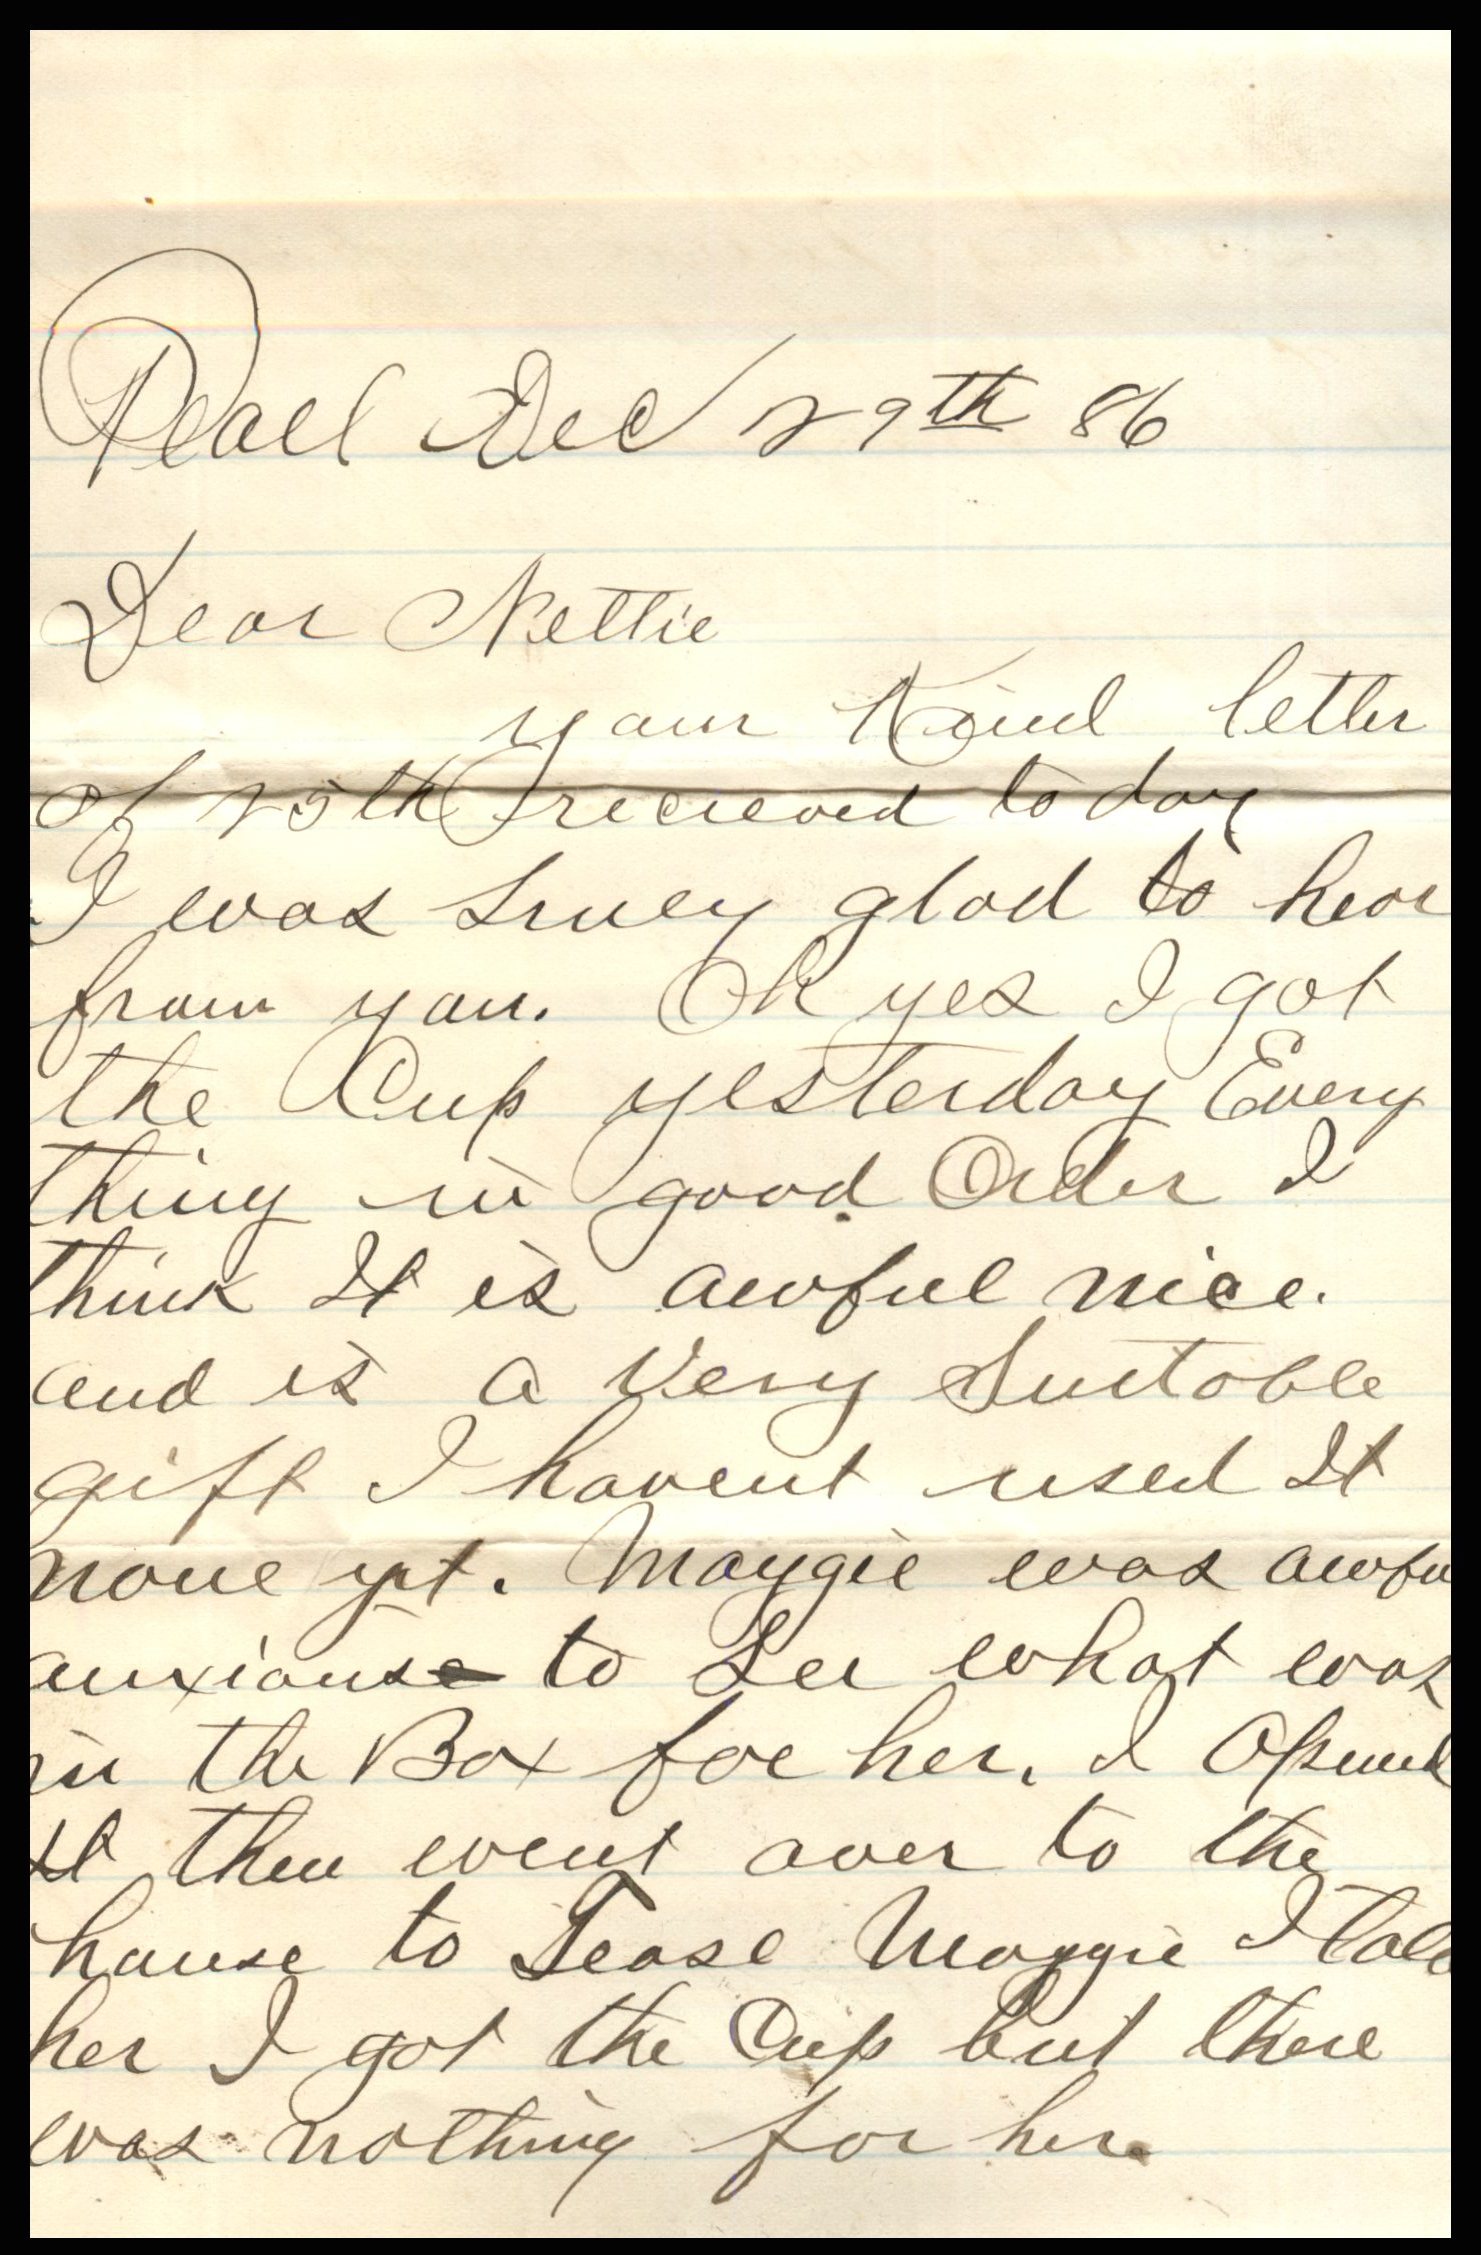 Pearl Dec 29th 86
Dear Nettie
your Kind letter
of 25th recieved to day
I was Truey glad to hear
from you. Oh yes I got
the Cup yesterday Every
thing in good Order I
think It is awful nice.
and is a Very Suitable
gift I havent used It
none yet. Maggie was awfu
anxious to See what was
in the Box for her. I Opened
It then went over to the
house to Tease Maggie I told
her I got the Cup but there
was nothing for her.